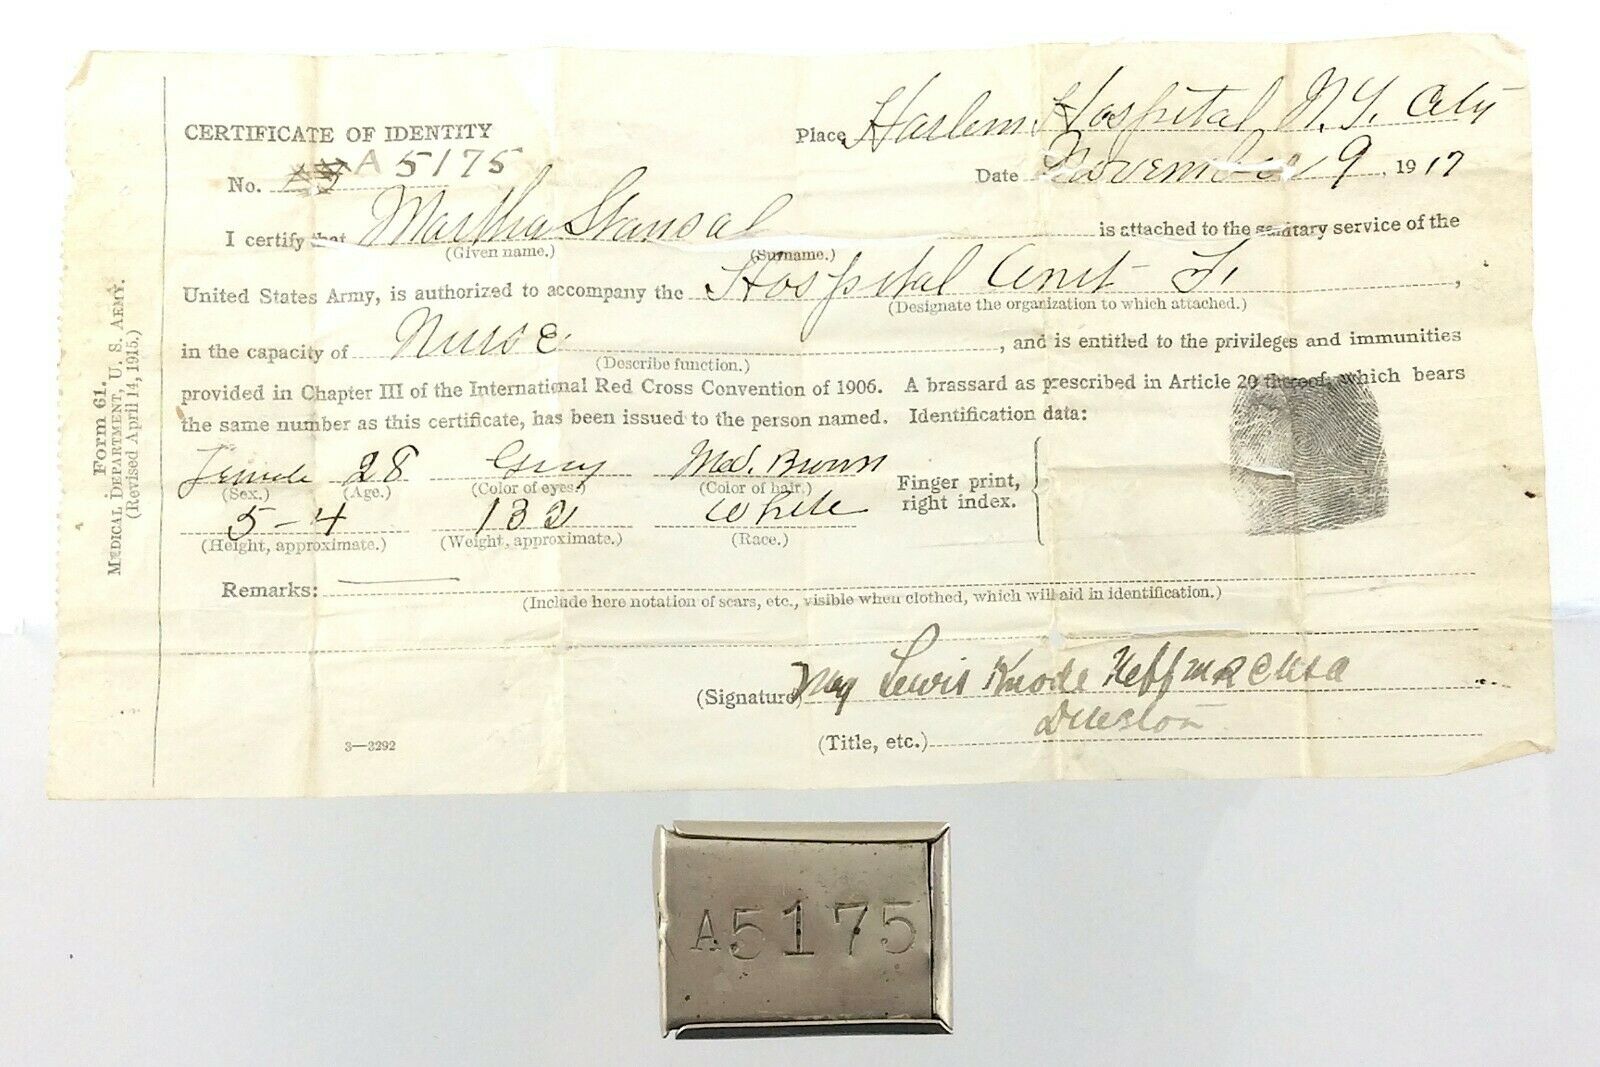 CERTIFICATE OF IDENTITY
Place Harlem Hospital N.Y. City
No. A 5175
Date November 9, 1917
I certify that Martha Stansal is attached to the sanitary service of the
(Given name.) (Surname.)
United States Army, is authorized to accompany the Hospital Unit F,
(Designate the organization to which attached.)
in the capacity of Nurse, and is entitled to the privileges and immunities
(Describe function.)
provided in Chapter III of the International Red Cross Convention of 1906. A brassard as prescribed in Article 20 thereof, which bears
the same number as this certificate, has been issued to the person named. Identification data:
Female 28 Gray Med. Brown
(Sex.) (Age.) (Color of eyes.) (Color of hair.)
Finger print,
right index.
5-4 132 White
(Height, approximate.) (Weight, approximate.) (Race.)
Remarks:
(Include here notation of scars, etc., visible when clothed, which will aid in identification.)
(Signature) Lewis Knode
(Title, etc.)
3—3292
Form 61.
MEDICAL DEPARTMENT, U. S. ARMY.
(Revised April 14, 1915.)
A5175